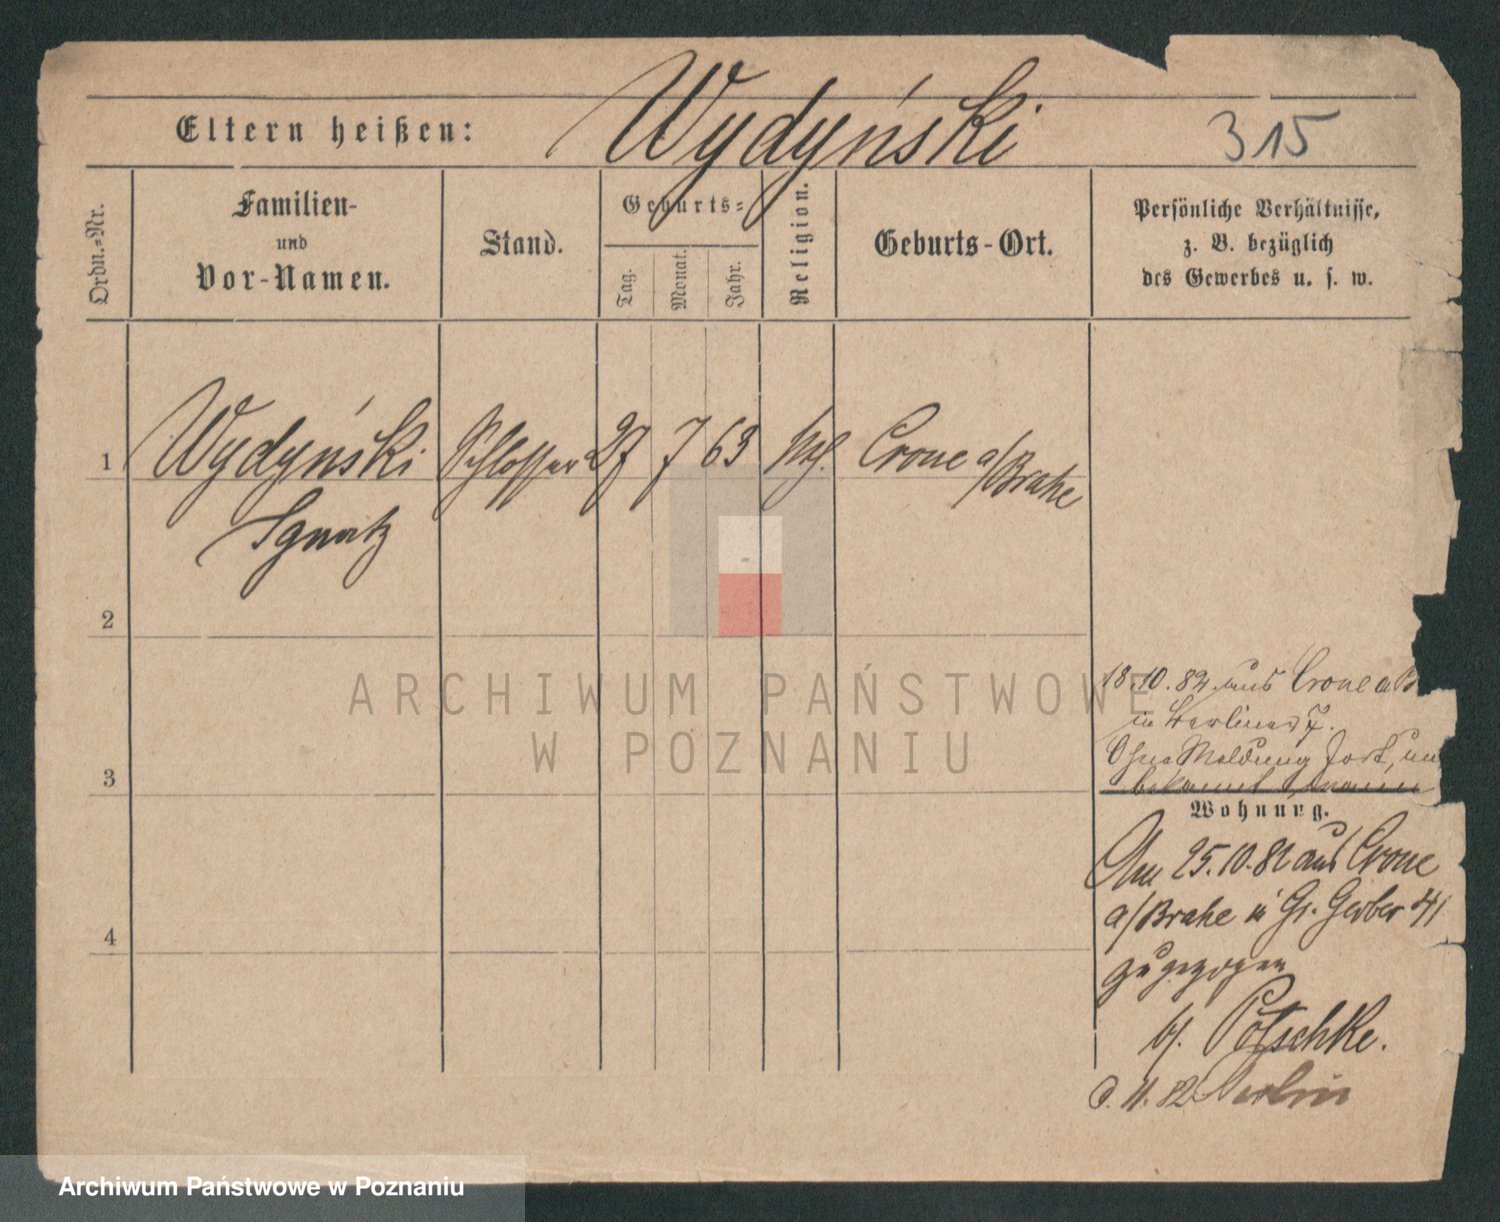 Eltern heißen: Wydyński 315
Ordn.=Nr.
Familien-
und
Vor-Namen.
Stand.
Geburts=
Tag.
Monat.
Jahr.
Religion.
Geburts-Ort.
Persönliche Verhältnisse,
z. B. bezüglich
des Gewerbes u. s. w.
1 Wydyński Schlosser 27 7 63 kth. Crone a/Brahe
Ignatz
2
3
4
18.10.82 aus Crone a B
in Berliner 7.
Ohne Meldung fort, un
bekannt
Wohnung.
Am 25.10.82 aus Crone
a/Brahe n Gr. Gerber 41
zugezogen
b/. Potschke.
11. 82 Berlin
ARCHIWUM PAŃSTWOWE
W POZNANIU
Archiwum Państwowe w Poznaniu